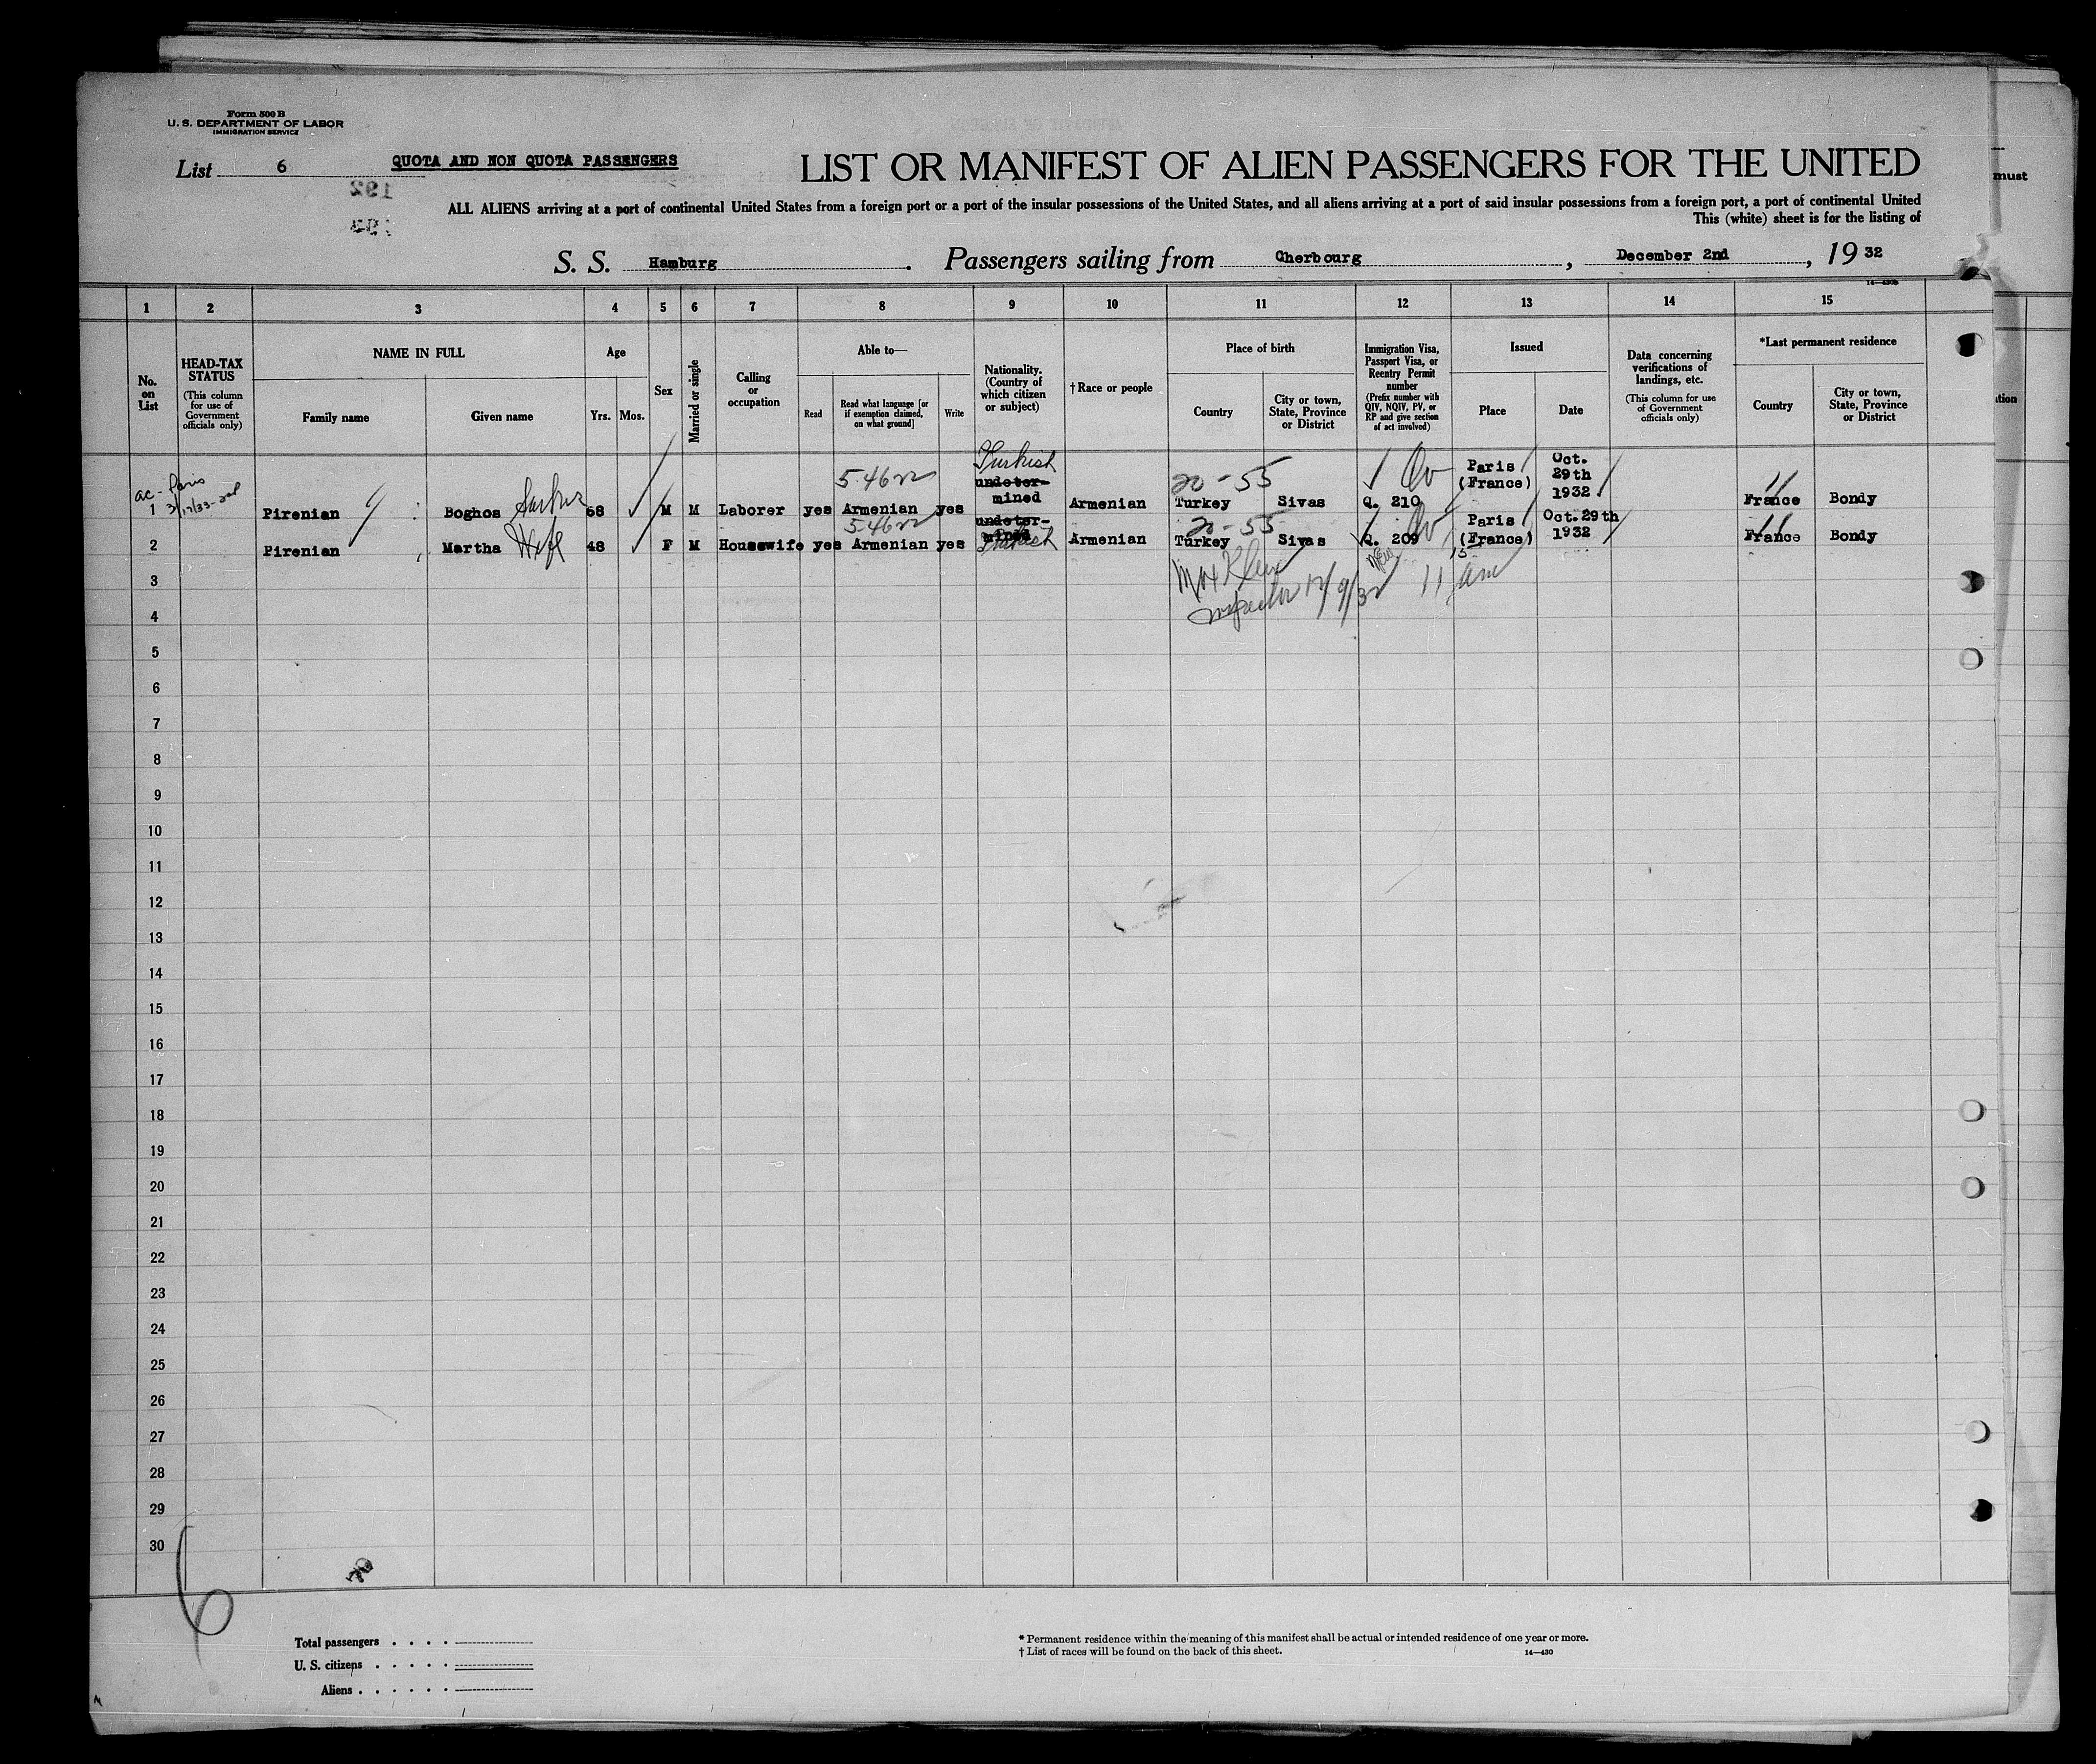 Form 500 B
U. S. DEPARTMENT OF LABOR
IMMIGRATION SERVICE
List 6
QUOTA AND NON QUOTA PASSENGERS
LIST OR MANIFEST OF ALIEN PASSENGERS FOR THE UNITED
192
ALL ALIENS arriving at a port of continental United States from a foreign port or a port of the insular possessions of the United States, and all aliens arriving at a port of said insular possessions from a foreign port, a port of continental United
This (white) sheet is for the listing of
must
S. S. Hamburg. Passengers sailing from Cherbourg, December 2nd, 19 32
1 2 3 4 5 6 7 8 9 10 11 12 13 14 15
No. on List
HEAD-TAX STATUS (This column for use of Government officials only)
NAME IN FULL
Family name Given name
Age
Yrs. Mos.
Sex
Married or single
Calling or occupation
Able to—
Read Read what language [or if exemption claimed, on what ground] Write
Nationality. (Country of which citizen or subject)
† Race or people
Place of birth
Country City or town, State, Province or District
Immigration Visa, Passport Visa, or Reentry Permit number (Prefix number with QIV, NQIV, PV, or RP and give section of act involved)
Issued
Place Date
Data concerning verifications of landings, etc. (This column for use of Government officials only)
*Last permanent residence
Country City or town, State, Province or District
Paris
1 Pirenian Boghos 68 M M Laborer yes Armenian yes Turkish undeter-mined Armenian 20-55 Turkey Sivas Q. 210 Paris (France) Oct. 29th 1932 France Bondy
2 Pirenian Martha Wife 48 F M Housewife yes Armenian yes undeter-mined Turkish Armenian 20-55 Turkey Sivas Q. 209 Paris (France) Oct. 29th 1932 France Bondy
3
4
5
6
7
8
9
10
11
12
13
14
15
16
17
18
19
20
21
22
23
24
25
26
27
28
29
30
6
Total passengers
U. S. citizens
Aliens
* Permanent residence within the meaning of this manifest shall be actual or intended residence of one year or more.
† List of races will be found on the back of this sheet.
14—430